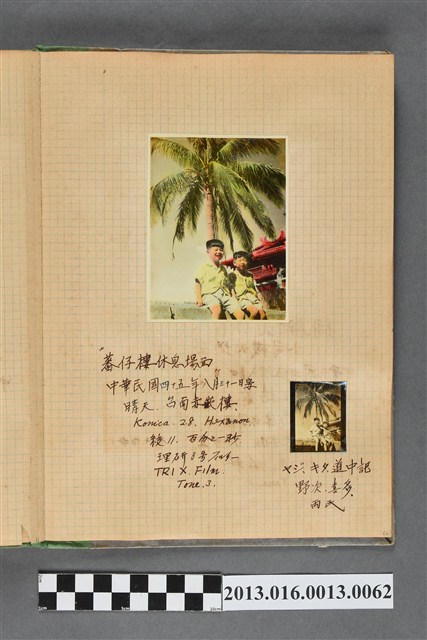 蕃仔樓休息場面
中華民國四十五年八月三十一日
晴天. 台南赤崁樓.
Konica 28. Hexanon
絞 11. 百分之一秒
理研
TRI X Film.
Tone. 3.
ヤジ、キタ道中記
野次. 喜多.
2013.016.0013.0062